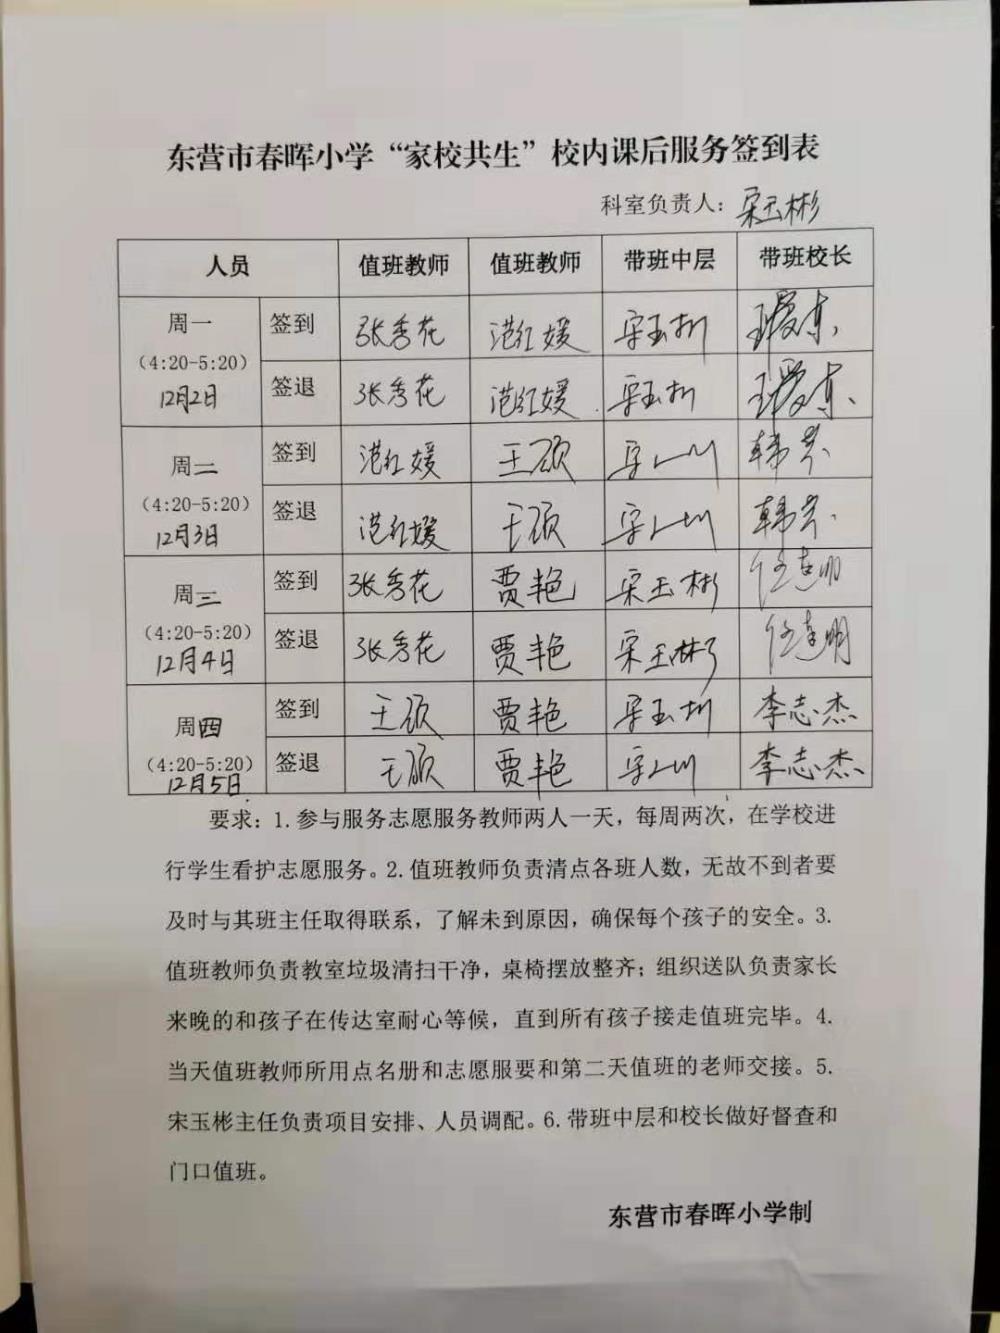 东营市春晖小学“家校共生”校内课后服务签到表
科室负责人：宋玉彬
人员 值班教师 值班教师 带班中层 带班校长
周一 (4:20-5:20) 12月2日
签到 张秀花 范红媛 宋玉彬
签退 张秀花 范红媛 宋玉彬
周二 (4:20-5:20) 12月3日
签到 范红媛 王颀 韩芳
签退 范红媛 王颀 韩芳
周三 (4:20-5:20) 12月4日
签到 张秀花 贾艳 宋玉彬 任建明
签退 张秀花 贾艳 宋玉彬 任建明
周四 (4:20-5:20) 12月5日
签到 王颀 贾艳 宋玉彬 李志杰
签退 王颀 贾艳 李志杰
要求：1.参与服务志愿服务教师两人一天，每周两次，在学校进
行学生看护志愿服务。2.值班教师负责清点各班人数，无故不到者要
及时与其班主任取得联系，了解未到原因，确保每个孩子的安全。3.
值班教师负责教室垃圾清扫干净，桌椅摆放整齐；组织送队负责家长
来晚的和孩子在传达室耐心等候，直到所有孩子接走值班完毕。4.
当天值班教师所用点名册和志愿服要和第二天值班的老师交接。5.
宋玉彬主任负责项目安排、人员调配。6.带班中层和校长做好督查和
门口值班。
东营市春晖小学制